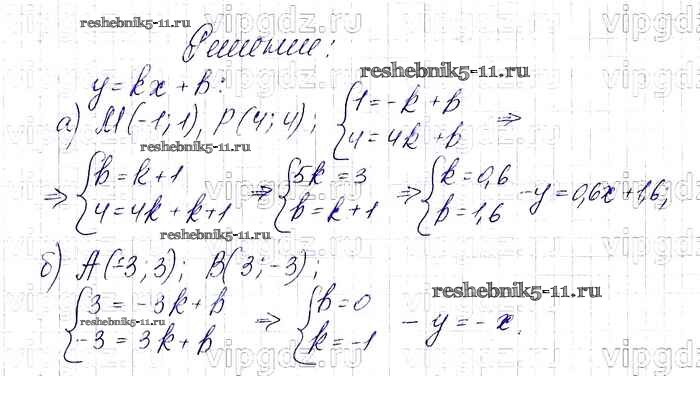 reshebnik5-11.ru
vipgdz.ru vipgdz.ru vipgdz.ru
Решение:
reshebnik5-11.ru
y=kx+b:
а) M(-1;1), P(4;4); {1=-k+b
4=4k+b ⇒
reshebnik5-11.ru
⇒ {b=k+1
4=4k+k+1 ⇒ {5k=3
b=k+1 ⇒ {k=0,6
b=1,6 -y=0,6x+1,6;
reshebnik5-11.ru
б) A(-3;3); B(3;-3);
reshebnik5-11.ru
{3=-3k+b
-3=3k+b ⇒ {b=0
k=-1 -y=-x.
reshebnik5-11.ru
vipgdz.ru vipgdz.ru vipgdz.ru